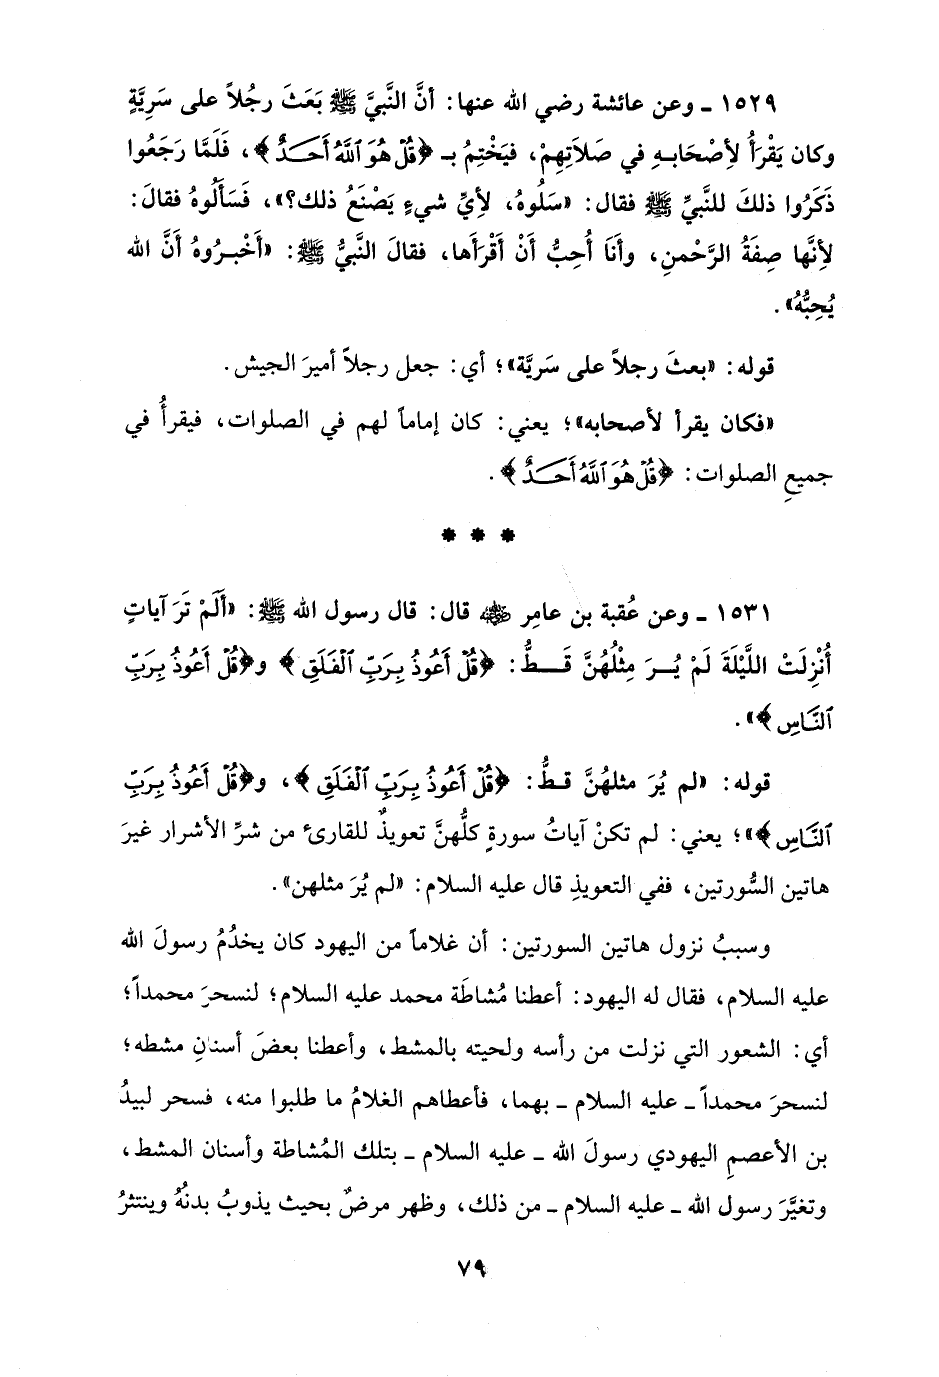 ١٥٢٩ - وعن عائشة رضي الله عنها: أنَّ النَّبيَّ ﷺ بَعَثَ رجُلاً على سَرِيَّةٍ
وكان يَقْرَأُ لأِصْحَابهِ في صَلاَتِهِمْ، فيَخْتِمُ بـ ﴿قُلْ هُوَ ٱللَّهُ أَحَدٌ﴾، فَلَمَّا رَجَعُوا
ذَكَرُوا ذلكَ للنَّبيِّ ﷺ فقال: «سَلُوهُ، لأِيِّ شيءٍ يَصْنَعُ ذلك؟»، فَسَأَلُوهُ فقالَ:
لأِنَّها صِفَةُ الرَّحْمنِ، وأَنَا أُحِبُّ أَنْ أَقْرَأَها، فقالَ النَّبيُّ ﷺ: «أَخْبرُوهُ أَنَّ الله
يُحِبُّهُ».
قوله: «بعثَ رجلاً على سَريَّة»؛ أي: جعل رجلاً أميرَ الجيش.
«فكان يقرأ لأصحابه»؛ يعني: كان إماماً لهم في الصلوات، فيقرأُ في
جميعِ الصلوات: ﴿قُلْ هُوَ ٱللَّهُ أَحَدٌ﴾.
* * *
١٥٣١ - وعن عُقبة بن عامِر ﷺ قال: قال رسول الله ﷺ: «أَلَمْ تَرَ آياتٍ
أُنْزِلَتْ اللَّيْلَةَ لَمْ يُرَ مِثْلُهُنَّ قَطُّ: ﴿قُلْ أَعُوذُ بِرَبِّ ٱلْفَلَقِ﴾ و﴿قُلْ أَعُوذُ بِرَبِّ
ٱلنَّاسِ﴾».
قوله: «لم يُرَ مثلهُنَّ قطُّ: ﴿قُلْ أَعُوذُ بِرَبِّ ٱلْفَلَقِ﴾، و﴿قُلْ أَعُوذُ بِرَبِّ
ٱلنَّاسِ﴾»؛ يعني: لم تكنْ آياتُ سورةٍ كلُّهنَّ تعويذٌ للقارئ من شرِّ الأشرار غيرَ
هاتين السُّورتين، ففي التعويذِ قال عليه السلام: «لم يُرَ مثلهن».
وسببُ نزول هاتين السورتين: أن غلاماً من اليهود كان يخدُمُ رسولَ الله
عليه السلام، فقال له اليهود: أعطنا مُشاطَة محمد عليه السلام؛ لنسحرَ محمداً؛
أي: الشعور التي نزلت من رأسه ولحيته بالمشط، وأعطنا بعضَ أسنانِ مشطه؛
لنسحرَ محمداً - عليه السلام - بهما، فأعطاهم الغلامُ ما طلبوا منه، فسحر لبيدُ
بن الأعصمِ اليهودي رسولَ الله - عليه السلام - بتلك المُشاطة وأسنان المشط،
وتغيَّرَ رسول الله - عليه السلام - من ذلك، وظهر مرضٌ بحيث يذوبُ بدنُهُ وينتثرُ
٧٩